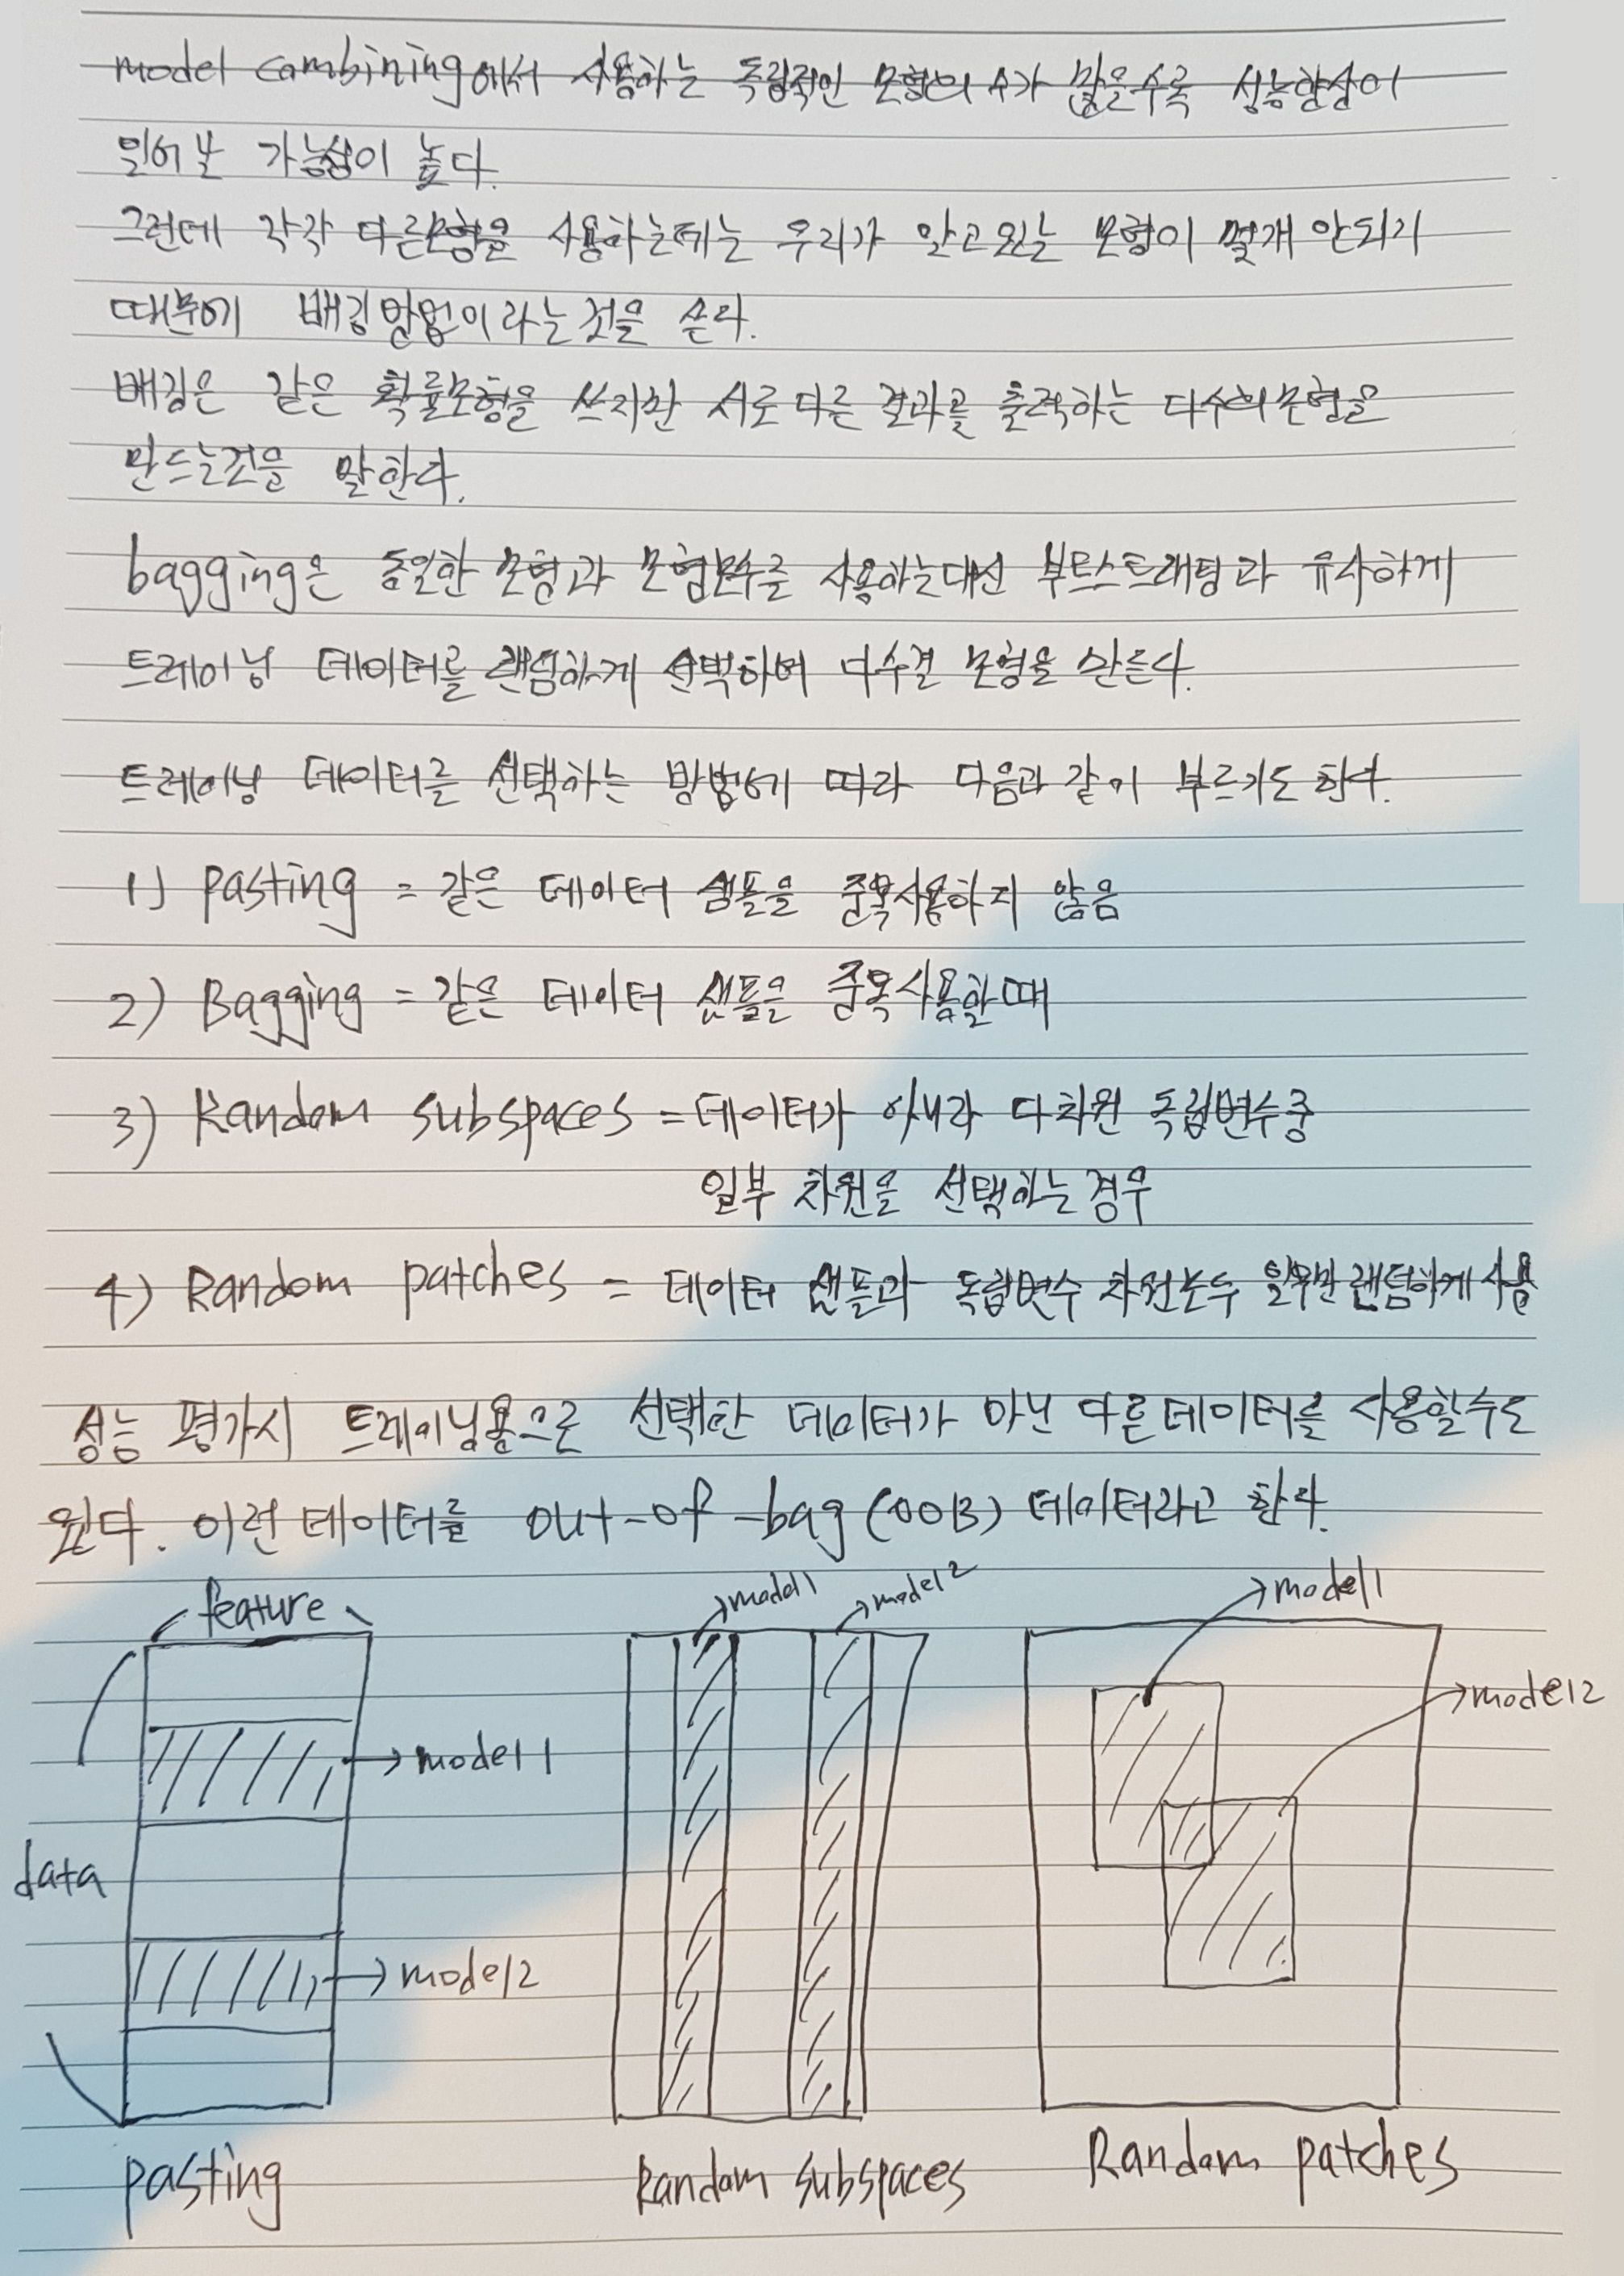 model combining에서 사용하는 독립적인 모형의 수가 많을수록 성능향상이
일어날 가능성이 높다.
그런데 각각 다른모형을 사용하는데는 우리가 알고있는 모형이 몇개 안되기
때문에 배깅방법이라는것을 쓴다.
배깅은 같은 확률모형을 쓰지만 서로다른 결과를 출력하는 다수의모형을
만드는것을 말한다.
bagging은 동일한 모형과 모형모수를 사용하는대신 부트스트래핑과 유사하게
트레이닝 데이터를 랜덤하게 선택하여 다수결 모형을 만든다.
트레이닝 데이터를 선택하는 방법에 따라 다음과 같이 부르기도 한다.
1) Pasting = 같은 데이터 샘플을 중복사용하지 않음
2) Bagging = 같은 데이터 샘플을 중복사용할때
3) Random subspaces = 데이터가 아니라 다차원 독립변수중
일부 차원을 선택하는경우
4) Random patches = 데이터 샘플과 독립변수 차원모두 일부만 랜덤하게사용
성능 평가시 트레이닝용으로 선택한 데이터가 아닌 다른데이터를 사용할수도
있다. 이런데이터를 out-of-bag(OOB) 데이터라고 한다.
feature
model1
model2
model1
model1
model2
data
model2
pasting
Random subspaces
Random patches